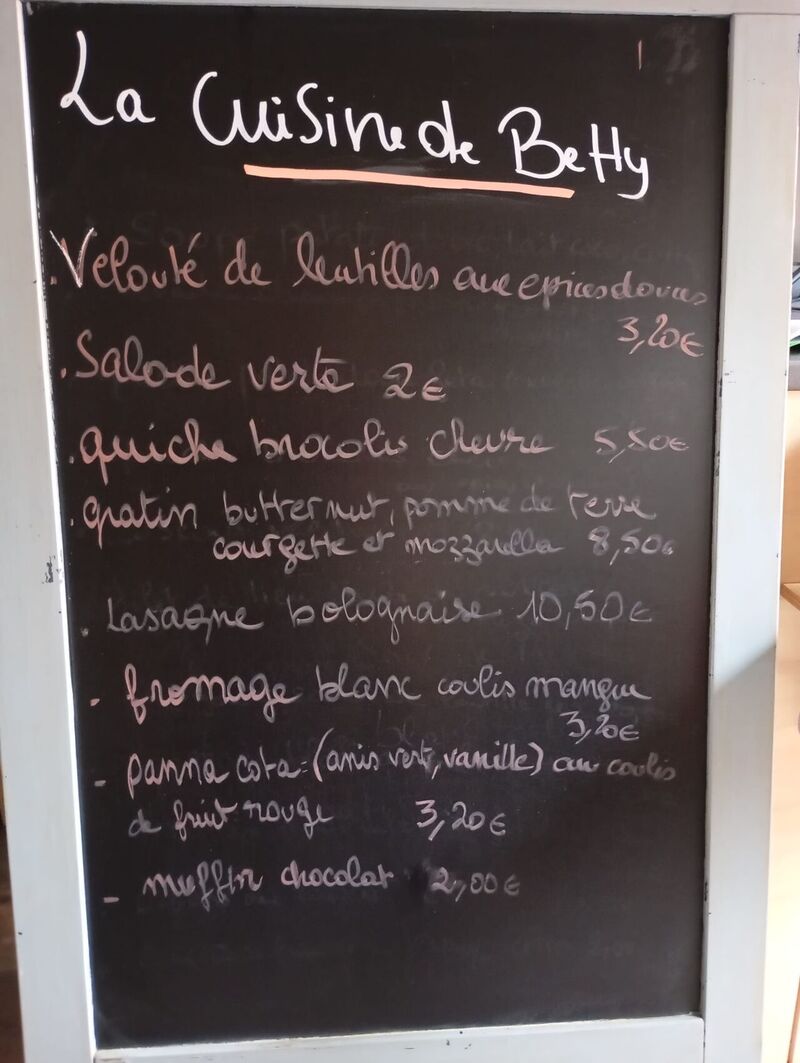 La Cuisine de Betty
. Velouté de lentilles aux epices douces
3,20€
. Salade verte 2€
. quiche brocolis chevre 5,50€
. gratin butternut, pomme de terre
courgette et mozzarella 8,50€
. Lasagne bolognaise 10,50€
- fromage blanc coulis mangue
3,20€
- panna cota (anis vert, vanille) au coulis
de fruit rouge 3,20€
- muffin chocolat 2,00€